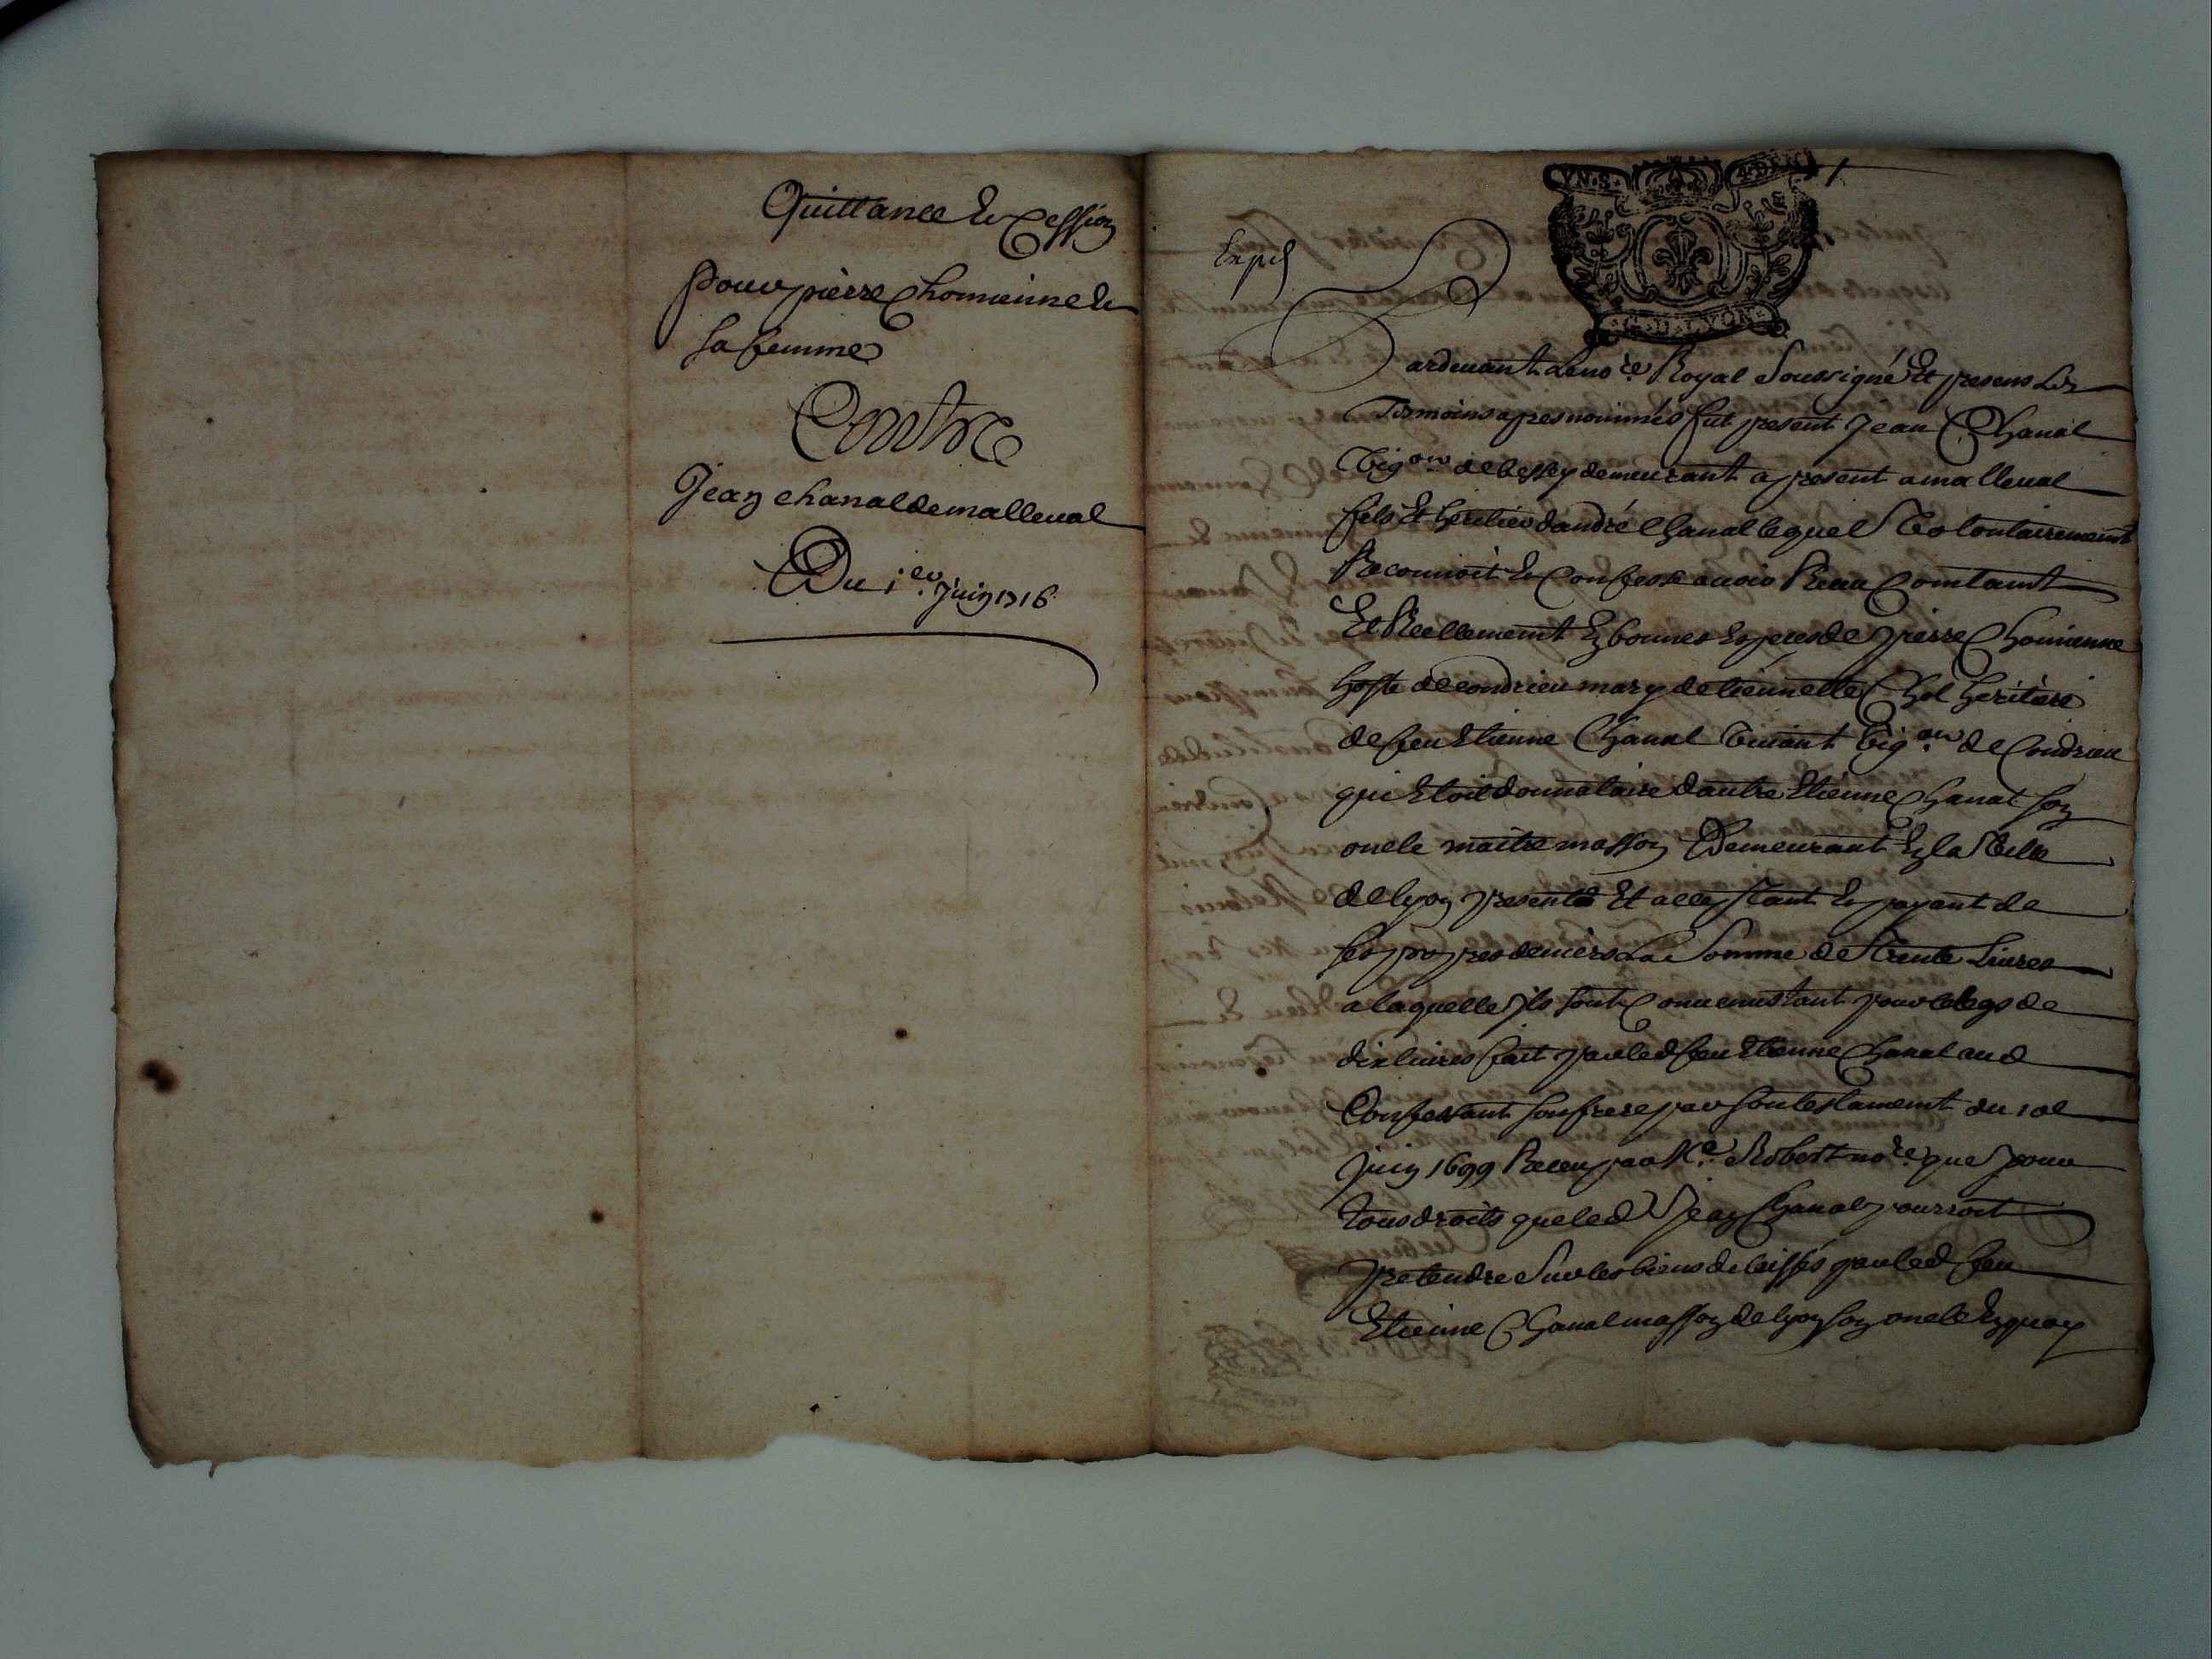 Quittance & Cession
pour pierre chomienne &
sa femme
Contre
Jean chanal de malleval
Du 1er. Juin 1716
Exped
G. D. LYON
Pardevant Le no.re Royal Soussigné Et presens Les
Temoins apres nommés fut present Jean Chanal
Vig.on de bessey demeurant a present a malleval
fils Et heritier dandré Chanal lequel Volontairement
Reconnoit & Confesse avoir Receu Comtant
Et Reellement En bonnes Especes de pierre Chomienne
hoste de condrieu mary de tiennette Chol heritiere
de feu Etienne Chanal vivant vig.on de Condrieu
qui Etoit donnataire dautre Etienne Chanal son
oncle maitre masson Demeurant En la Ville
de lyon present Et acceptant & payant de
ses propres deniers La Somme de trente Livres
a laquelle ils sont Convenus tant pour le legs de
dix livres fait par led feu Etienne Chanal aud
Confessant son frere par son testament du 10e
Juin 1699 Receu par Me. Robert no.re que pour
tous droits que led Jean Chanal pourroit
pretendre Sur les biens delaissés par led feu
Etienne Chanal masson de lyon son oncle En quoy